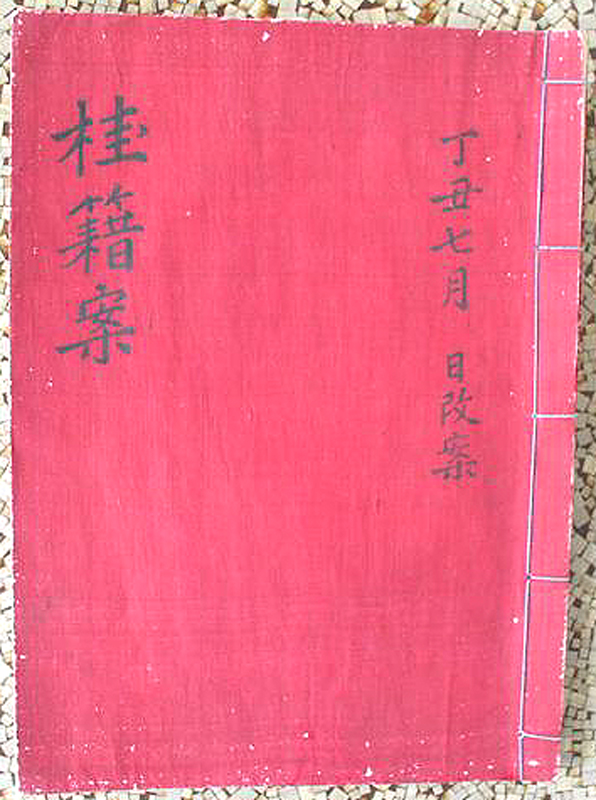 丁丑七月 日改案
桂籍案